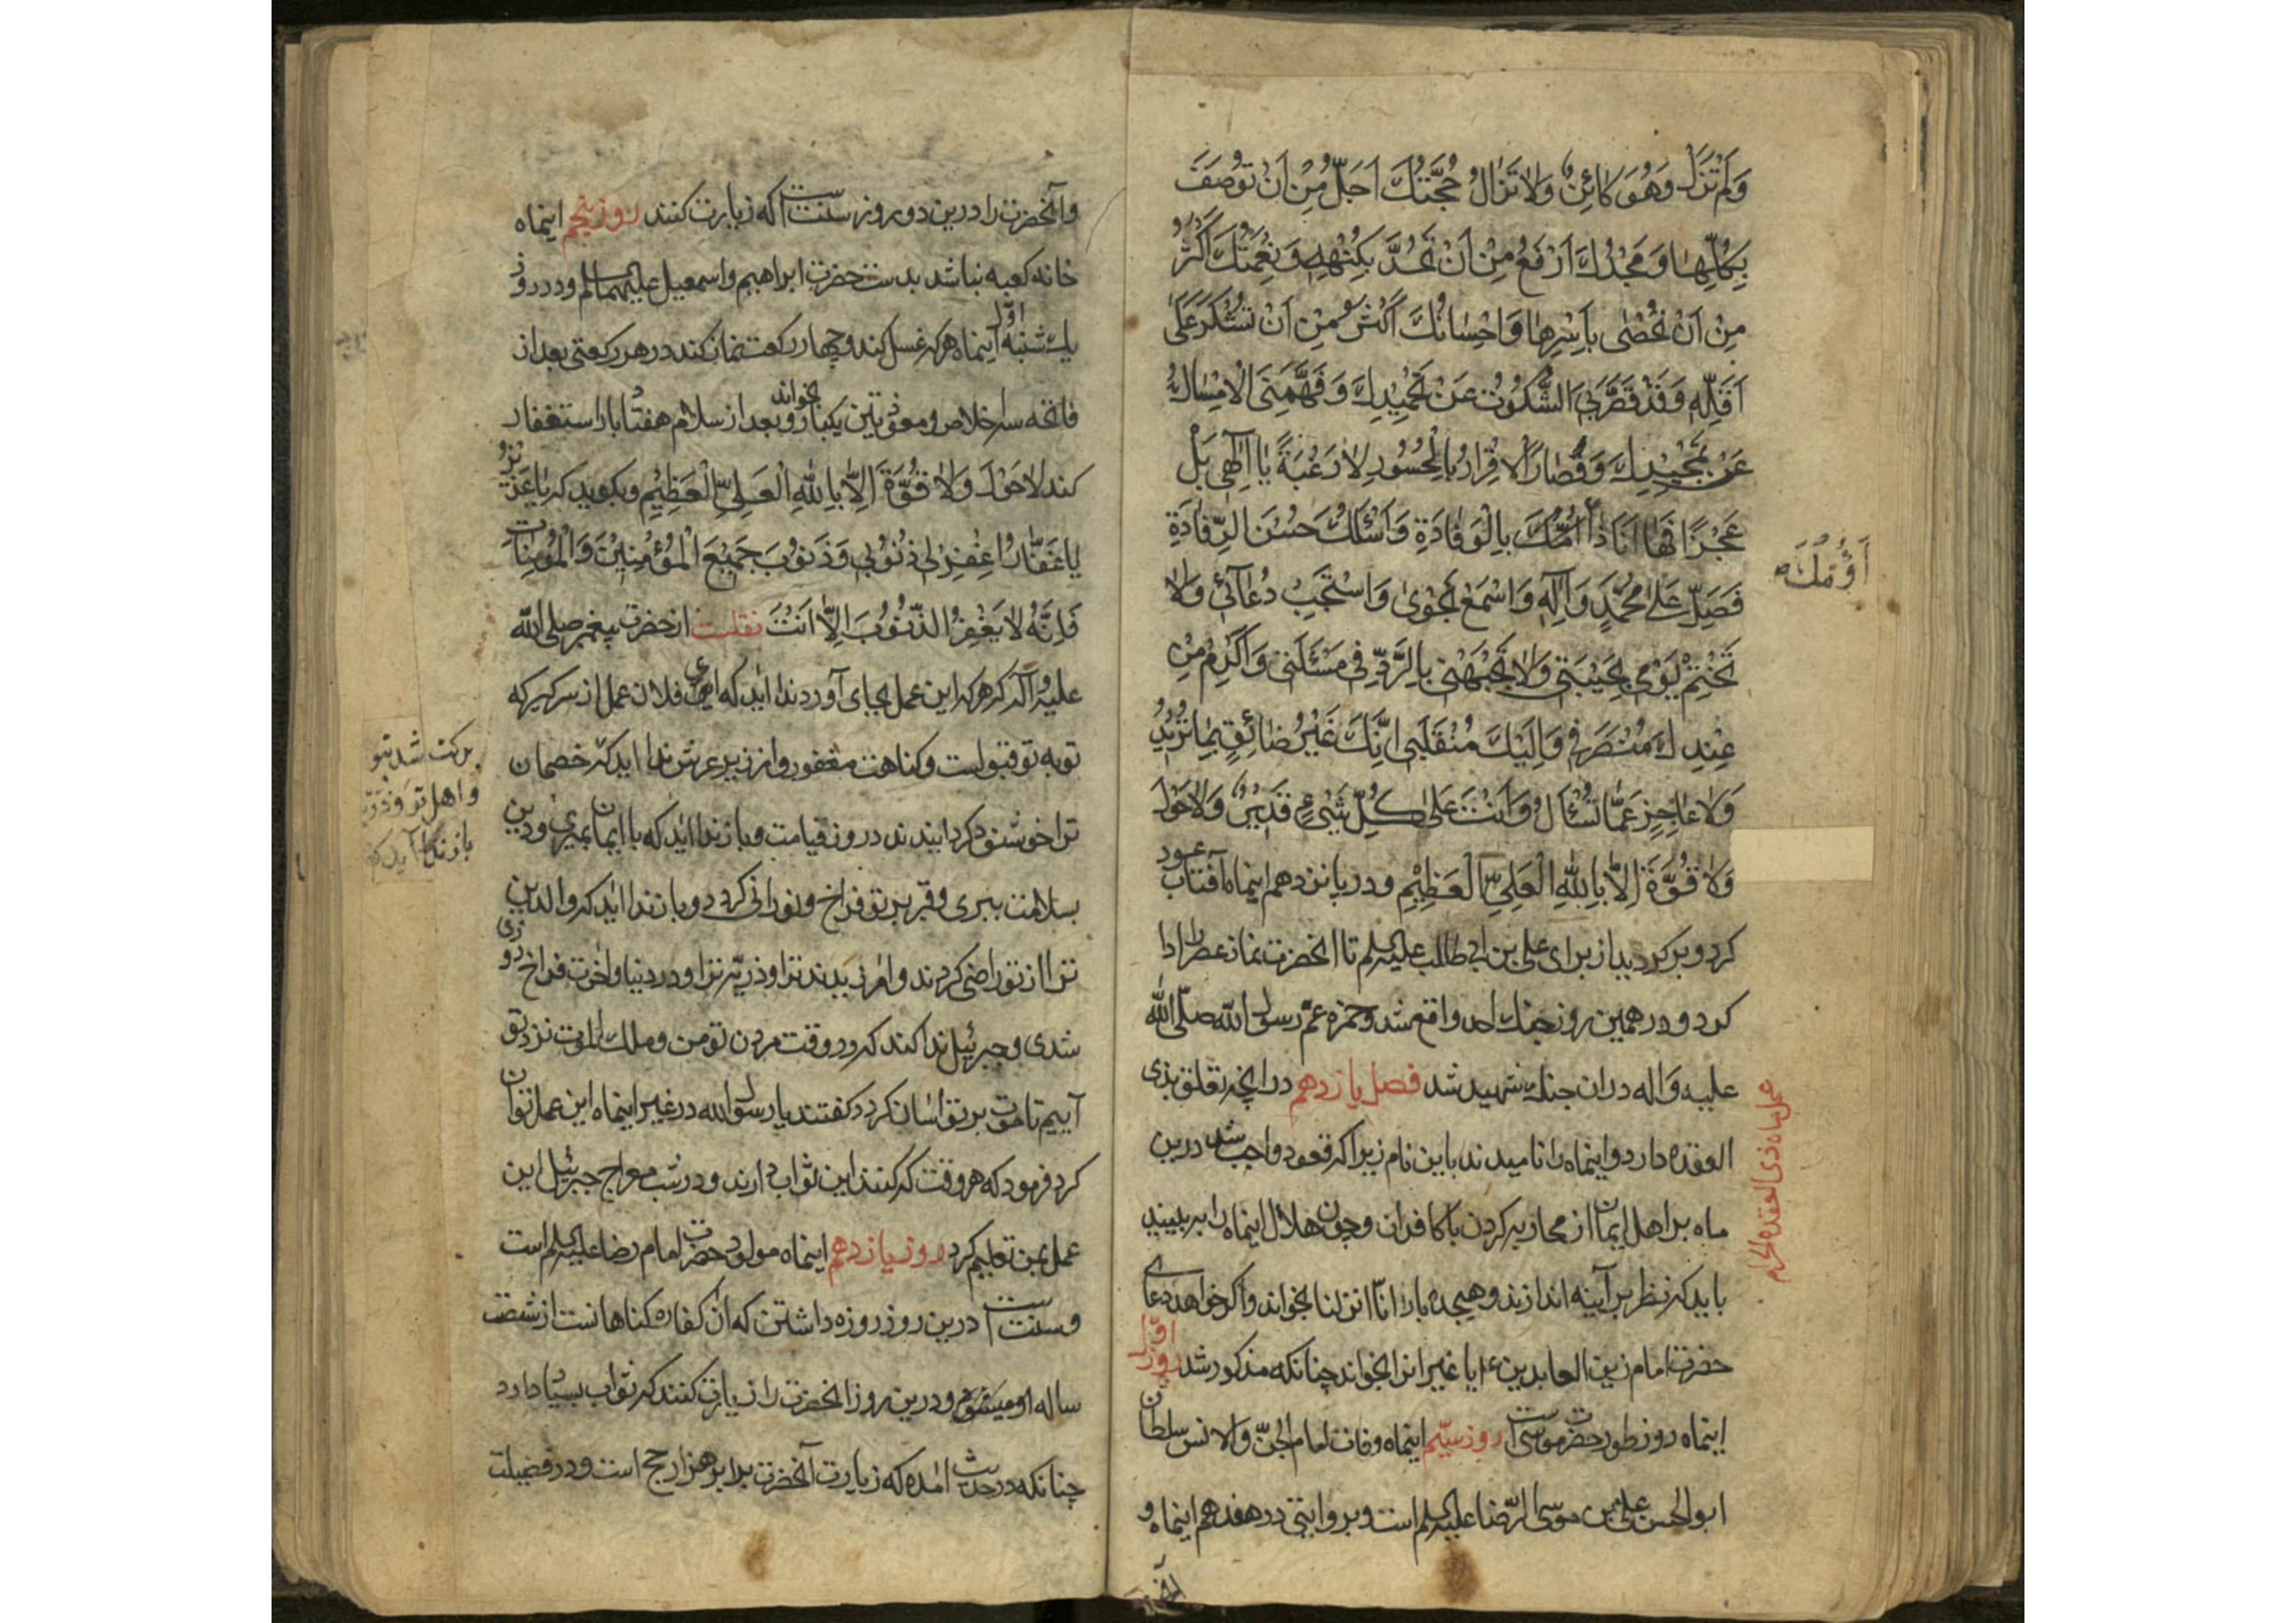 وَلَمْ تَزَلْ وَهُوَ كائِنٌ وَلا تَزالُ حُجَّتُكَ اَجَلُّ مِنْ اَنْ تُوصَفَ
بِكُلِّها وَمَجْدُكَ اَرْفَعُ مِنْ اَنْ تُحَدَّ بِكُنْهِهِ وَنِعْمَتُكَ اَكْثَرُ
مِنْ اَنْ تُحْصٰى بِاَسْرِها وَاِحْسانُكَ اَكْثَرُ مِنْ اَنْ تُشْكَرَ عَلى
اَقَلِّهِ وَقَدْ قَصَّرَبِيَ السُّكُوتُ عَنْ تَحْمِيدِكَ وَفَهَّهَنِيَ الْاِمْساكُ
عَنْ تَمْجِيدِكَ وَقُصارايَ الْاِقْرارُ بِالْحُسُورِ لا رَغْبَةً يا اِلٰهِي بَلْ
عَجْزًا فَها اَنَا ذا اَؤُمُّكَ بِالْوِفادَةِ وَاَسْئَلُكَ حُسْنَ الرِّفادَةِ
فَصَلِّ عَلى مُحَمَّدٍ وَآلِهِ وَاسْمَعْ نَجْوٰىَ وَاسْتَجِبْ دُعآئِي وَلا
تَخْتِمْ يَوْمِي بِخَيْبَتِي وَلا تَجْبَهْنِي بِالرَّدِّ فِي مَسْئَلَتِي وَاَكْرِمْ مِنْ
عِنْدِكَ مُنْصَرَفِي وَاِلَيْكَ مُنْقَلَبِي اِنَّكَ غَيْرُ ضائِقٍ بِما تُرِيدُ
وَلا عاجِزٍ عَمّا تُسْأَلُ وَاَنْتَ عَلى كُلِّ شَيْءٍ قَدِيرٌ وَلا حَوْلَ
وَلا قُوَّةَ اِلّا بِاللهِ الْعَلِيِّ الْعَظِيمِ ودر پانزدهم اینماه آفتاب عود
کرد و برگردید از برای علی بن ابی طالب علیه السلم تا آنحضرت نماز عصر را ادا
کرد و در همین روز جنك احد واقع شد و حمزه عمّ رسول الله صلّی الله
علیه وآله در ان جنك شهید شد فصل یازدهم در آنچه تعلق بذی
القعده دارد و اینماه را نامیدند باین نام زیرا که قعود واجب شد درین
ماه بر اهل ایمان از محاربه کردن با کافران و چون هلال اینماه را ببینید
باید که نظر بر آینه اندازند و هیجده بار انّا انزلنا بخواند و اگر خواهد دعای
حضرت امام زین العابدین ع یا غیر انرا بخواند چنانکه مذکور شد روز اوّل
اینماه روز طور حضرت موسی است روز سیّم اینماه وفات امام الجنّ والانس سلطان
ابو الحسن علی بن موسی الرّضا علیه السلم است و بروایتی در هفدهم اینماه و
اَؤُمُّكَ
عمل ماه ذی القعدة الحرام
وآنحضرت را درین دو روز سنت است که زیارت کنند روز پنجم اینماه
خانه کعبه بنا شد بدست حضرت ابراهیم و اسمعیل علیهما السلم و در روز
یك شنبه اوّل اینماه هر که غسل کند و چهار رکعت نماز کند در هر رکعتی بعد از
فاتحه سه اخلاص و معوّذتین یکبار بخواند و بعد از سلام هفتاد بار استغفار
کند لا حَوْلَ وَلا قُوَّةَ اِلّا بِاللهِ الْعَلِيِّ الْعَظِيمِ و بگوید که یا عَزِیزُ
یا غَفّارُ اغْفِرْ لِي ذُنُوبِي وَذُنُوبَ جَمِيعِ الْمُؤْمِنِينَ وَالْمُؤْمِناتِ
فَاِنَّهُ لا يَغْفِرُ الذُّنُوبَ اِلّا اَنْتَ نقلست از حضرت پیغمبر صلی الله
علیه وآله که هر که این عمل بجای آورد ندا اید که ای فلان عمل از سر گیر که
توبه تو قبولست و گناهت مغفور و از زیر عرش ندا اید که خصمان
ترا خوشنود گردانیدند در روز قیامت و باز ندا اید که با ایمان بمیری و دین
بسلامت ببری و قبر بر تو فراخ و نورانی گردد و باز ندا اید که والدین
ترا از تو راضی گردند و امرزیدند ترا و ذریّه ترا و در دنیا و اخرت فراخ روزی
شدی و جبرئیل ندا کند که در وقت مردن تو من و ملك الموت نزد تو
آییم تا موت بر تو اسان گردد گفتند یا رسول الله در غیر اینماه این عمل توان
کرد فرمود که هر وقت که کنند این ثواب دارند و در شب معراج جبرئیل این
عمل بمن تعلیم کرد روز یازدهم اینماه مولود حضرت امام رضا علیه السلم است
و سنت است درین روز روزه داشتن که ان کفاره گناهانست از شصت
ساله او میشود و درین روز آنحضرت را زیارت کنند که ثواب بسیار دارد
چنانکه در حدیث امده که زیارت آنحضرت برابر هزار حج است و در فضیلت
برکت شد بتو
و اهل تو و ذریّه
باز ندا آید که